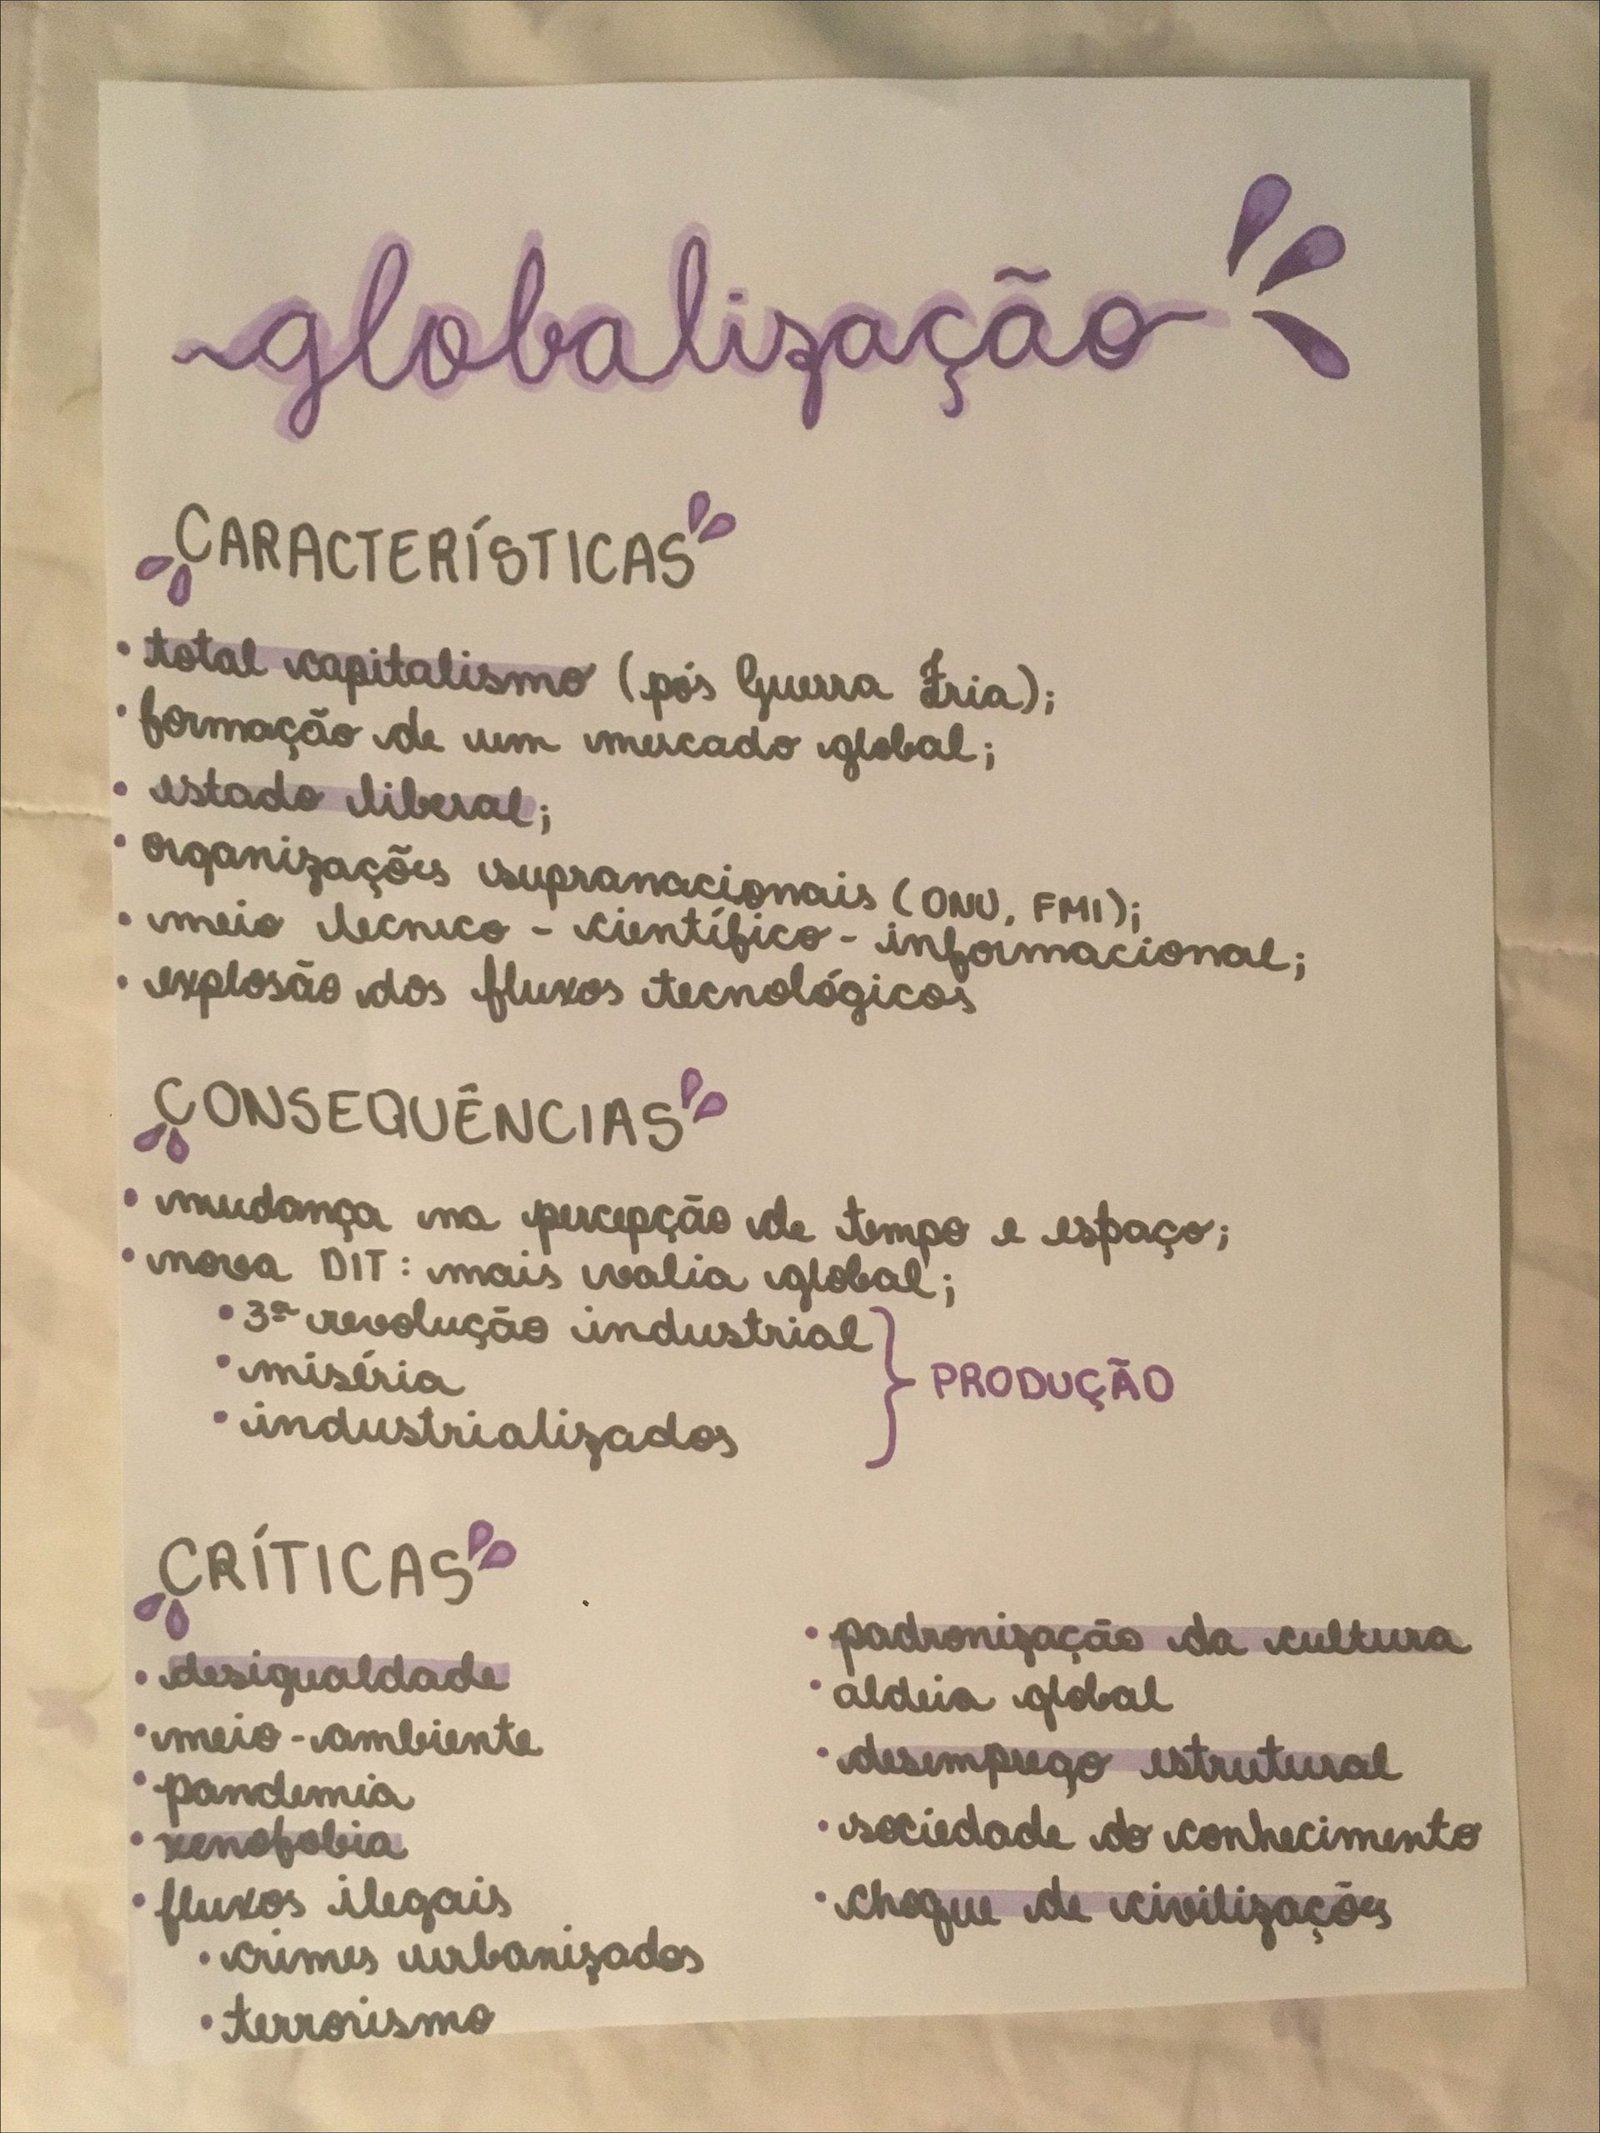 globalização
CARACTERÍSTICAS
• total capitalismo (pós Guerra Fria);
• formação de um mercado global;
• estado liberal;
• organizações supranacionais (ONU, FMI);
• meio tecnico - científico - informacional;
• explosão dos fluxos tecnológicos
CONSEQUÊNCIAS
• mudança na percepção de tempo e espaço;
• nova DIT: mais valia global;
• 3ª revolução industrial
• miséria
• industrializados
PRODUÇÃO
CRÍTICAS
• desigualdade
• meio-ambiente
• pandemia
• xenofobia
• fluxos ilegais
• crimes urbanizados
• terrorismo
• padronização da cultura
• aldeia global
• desemprego estrutural
• sociedade do conhecimento
• choque de civilizações